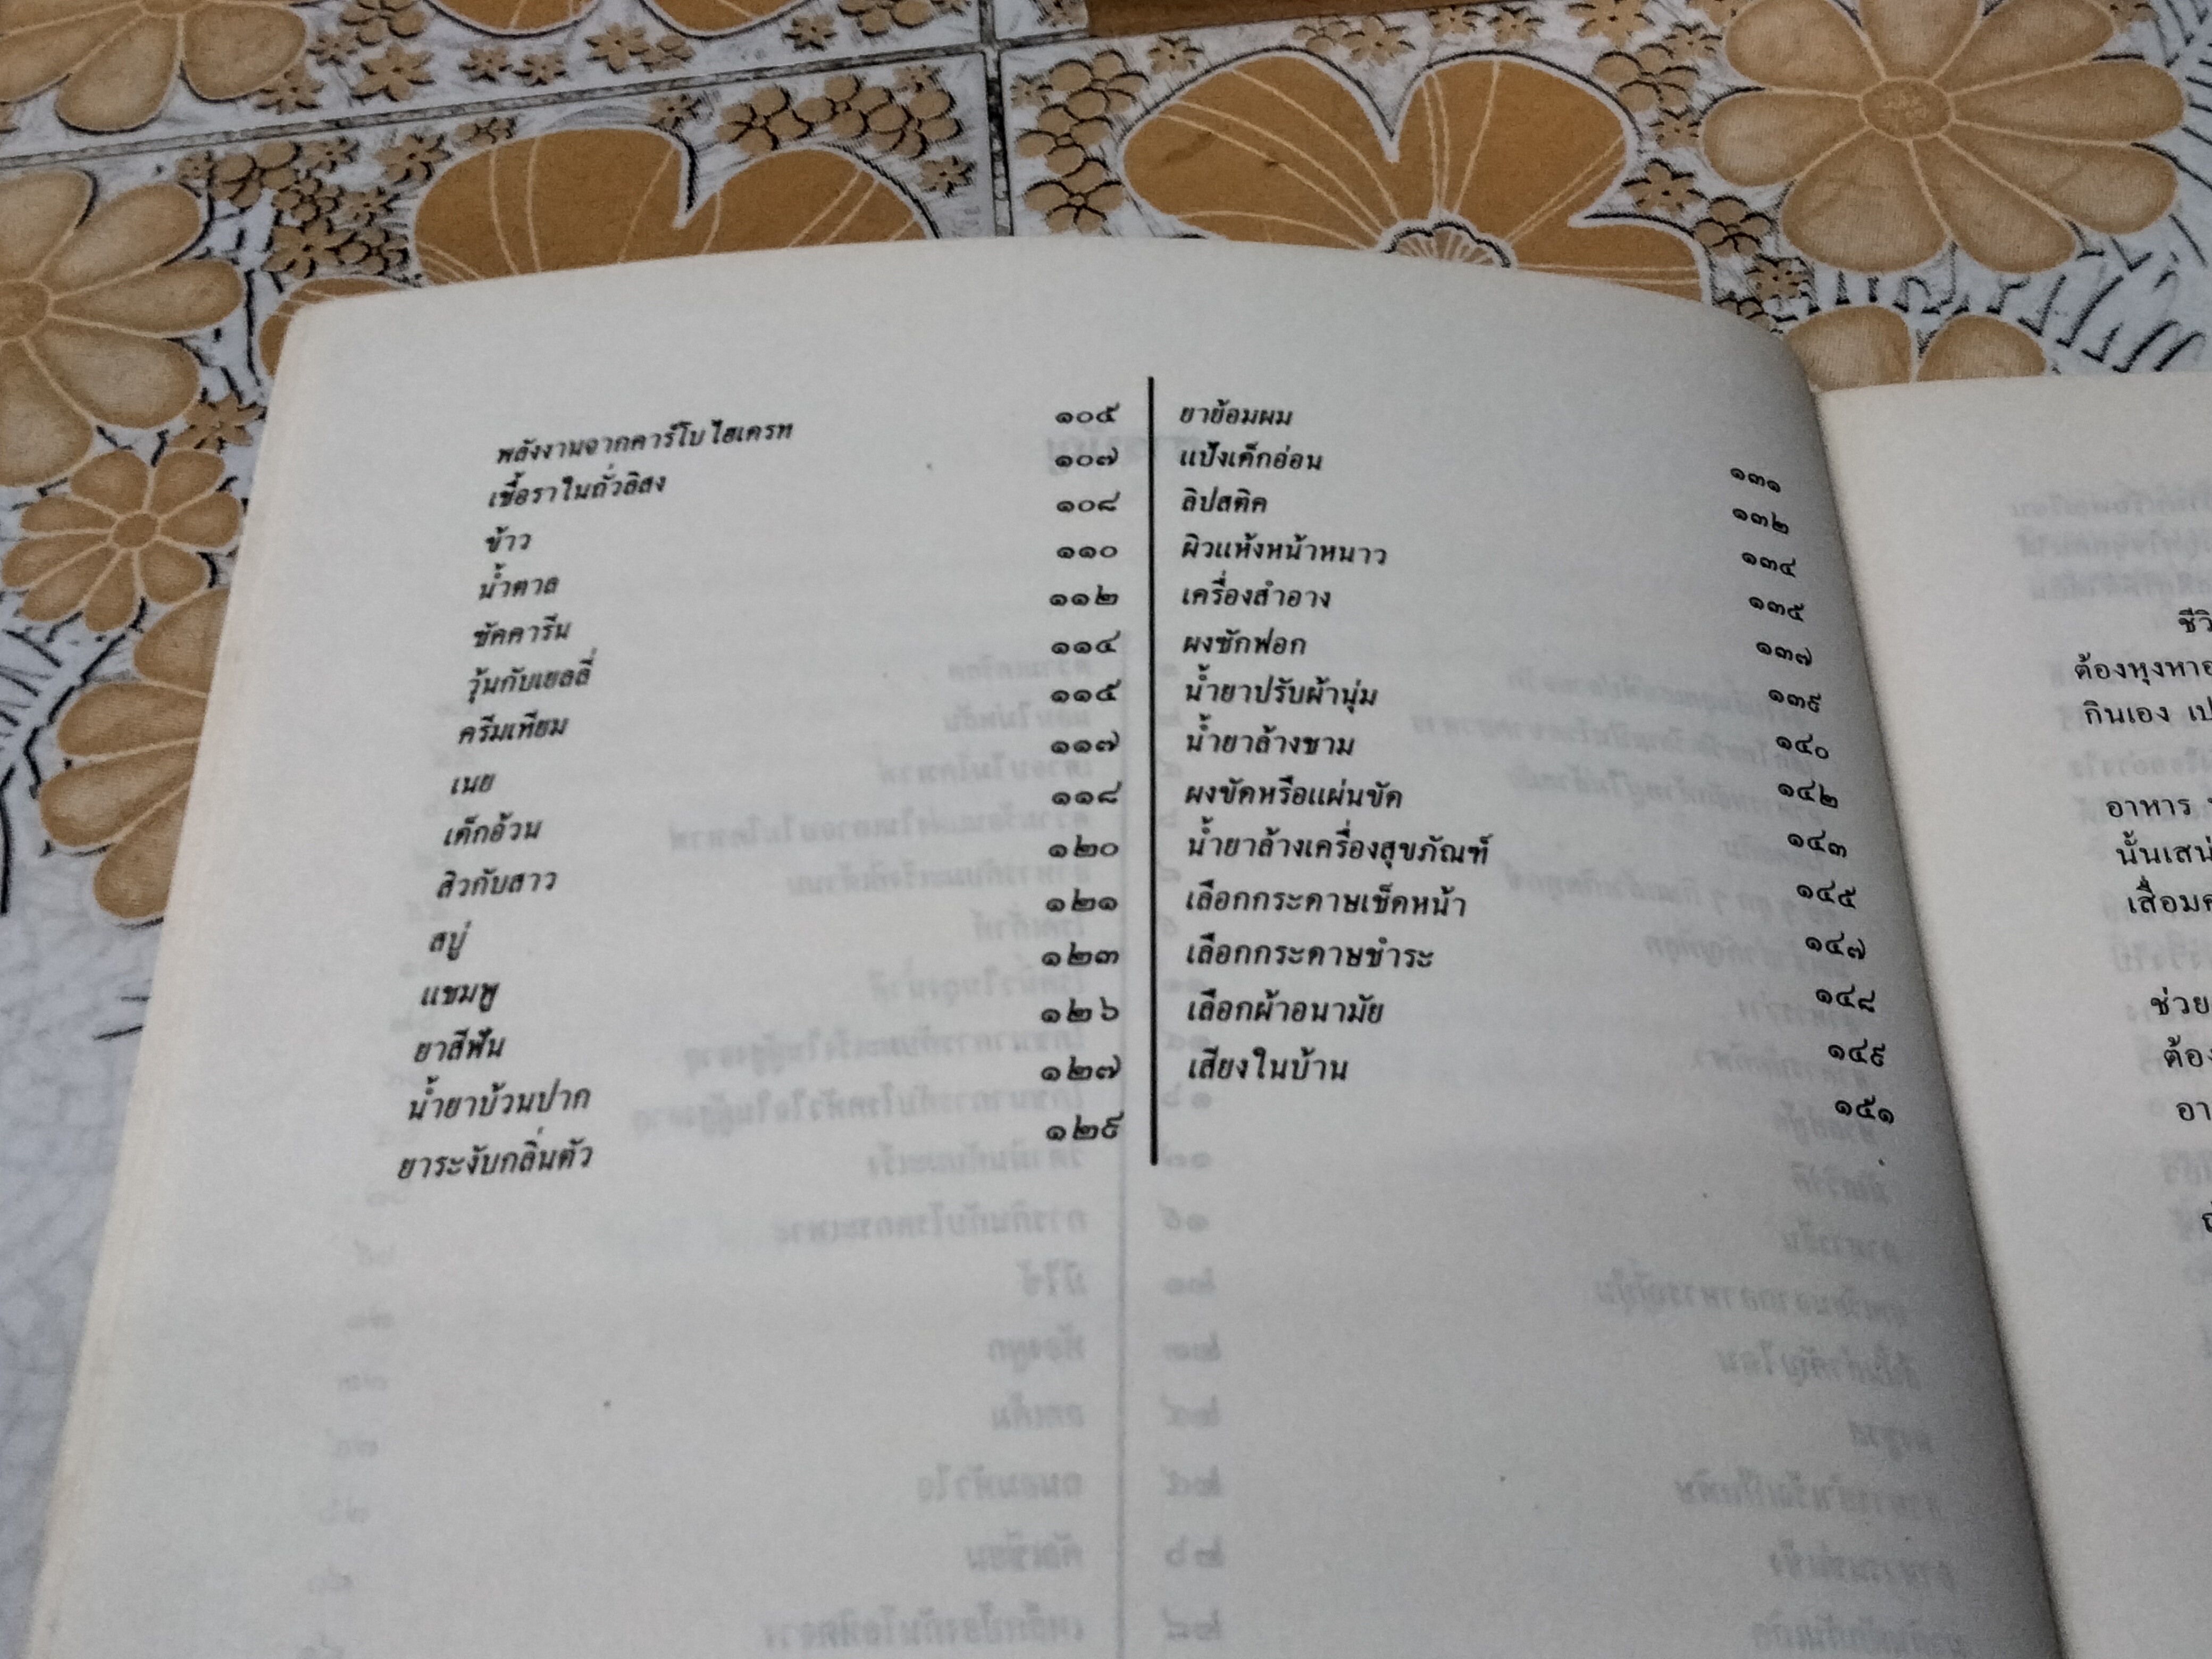 พลังงานจากคาร์โบไฮเดรท ๑๐๕
เชื้อราในถั่วลิสง ๑๐๗
ข้าว ๑๐๘
น้ำตาล ๑๑๐
ซัคคารีน ๑๑๒
วุ้นกับเยลลี่ ๑๑๔
ครีมเทียม ๑๑๕
เนย ๑๑๗
เด็กอ้วน ๑๑๘
สิวกับสาว ๑๒๐
สบู่ ๑๒๑
แชมพู ๑๒๓
ยาสีฟัน ๑๒๖
น้ำยาบ้วนปาก ๑๒๗
ยาระงับกลิ่นตัว ๑๒๙
ยาย้อมผม ๑๓๑
แป้งเด็กอ่อน ๑๓๒
ลิปสติค ๑๓๔
ผิวแห้งหน้าหนาว ๑๓๕
เครื่องสำอาง ๑๓๗
ผงซักฟอก ๑๓๙
น้ำยาปรับผ้านุ่ม ๑๔๐
น้ำยาล้างชาม ๑๔๒
ผงขัดหรือแผ่นขัด ๑๔๓
น้ำยาล้างเครื่องสุขภัณฑ์ ๑๔๕
เลือกกระดาษเช็ดหน้า ๑๔๗
เลือกกระดาษชำระ ๑๔๘
เลือกผ้าอนามัย ๑๔๙
เสียงในบ้าน ๑๕๑
ต้องหุงหา
กินเอง
อาหาร
นั้น
ช่วย
ต้อง